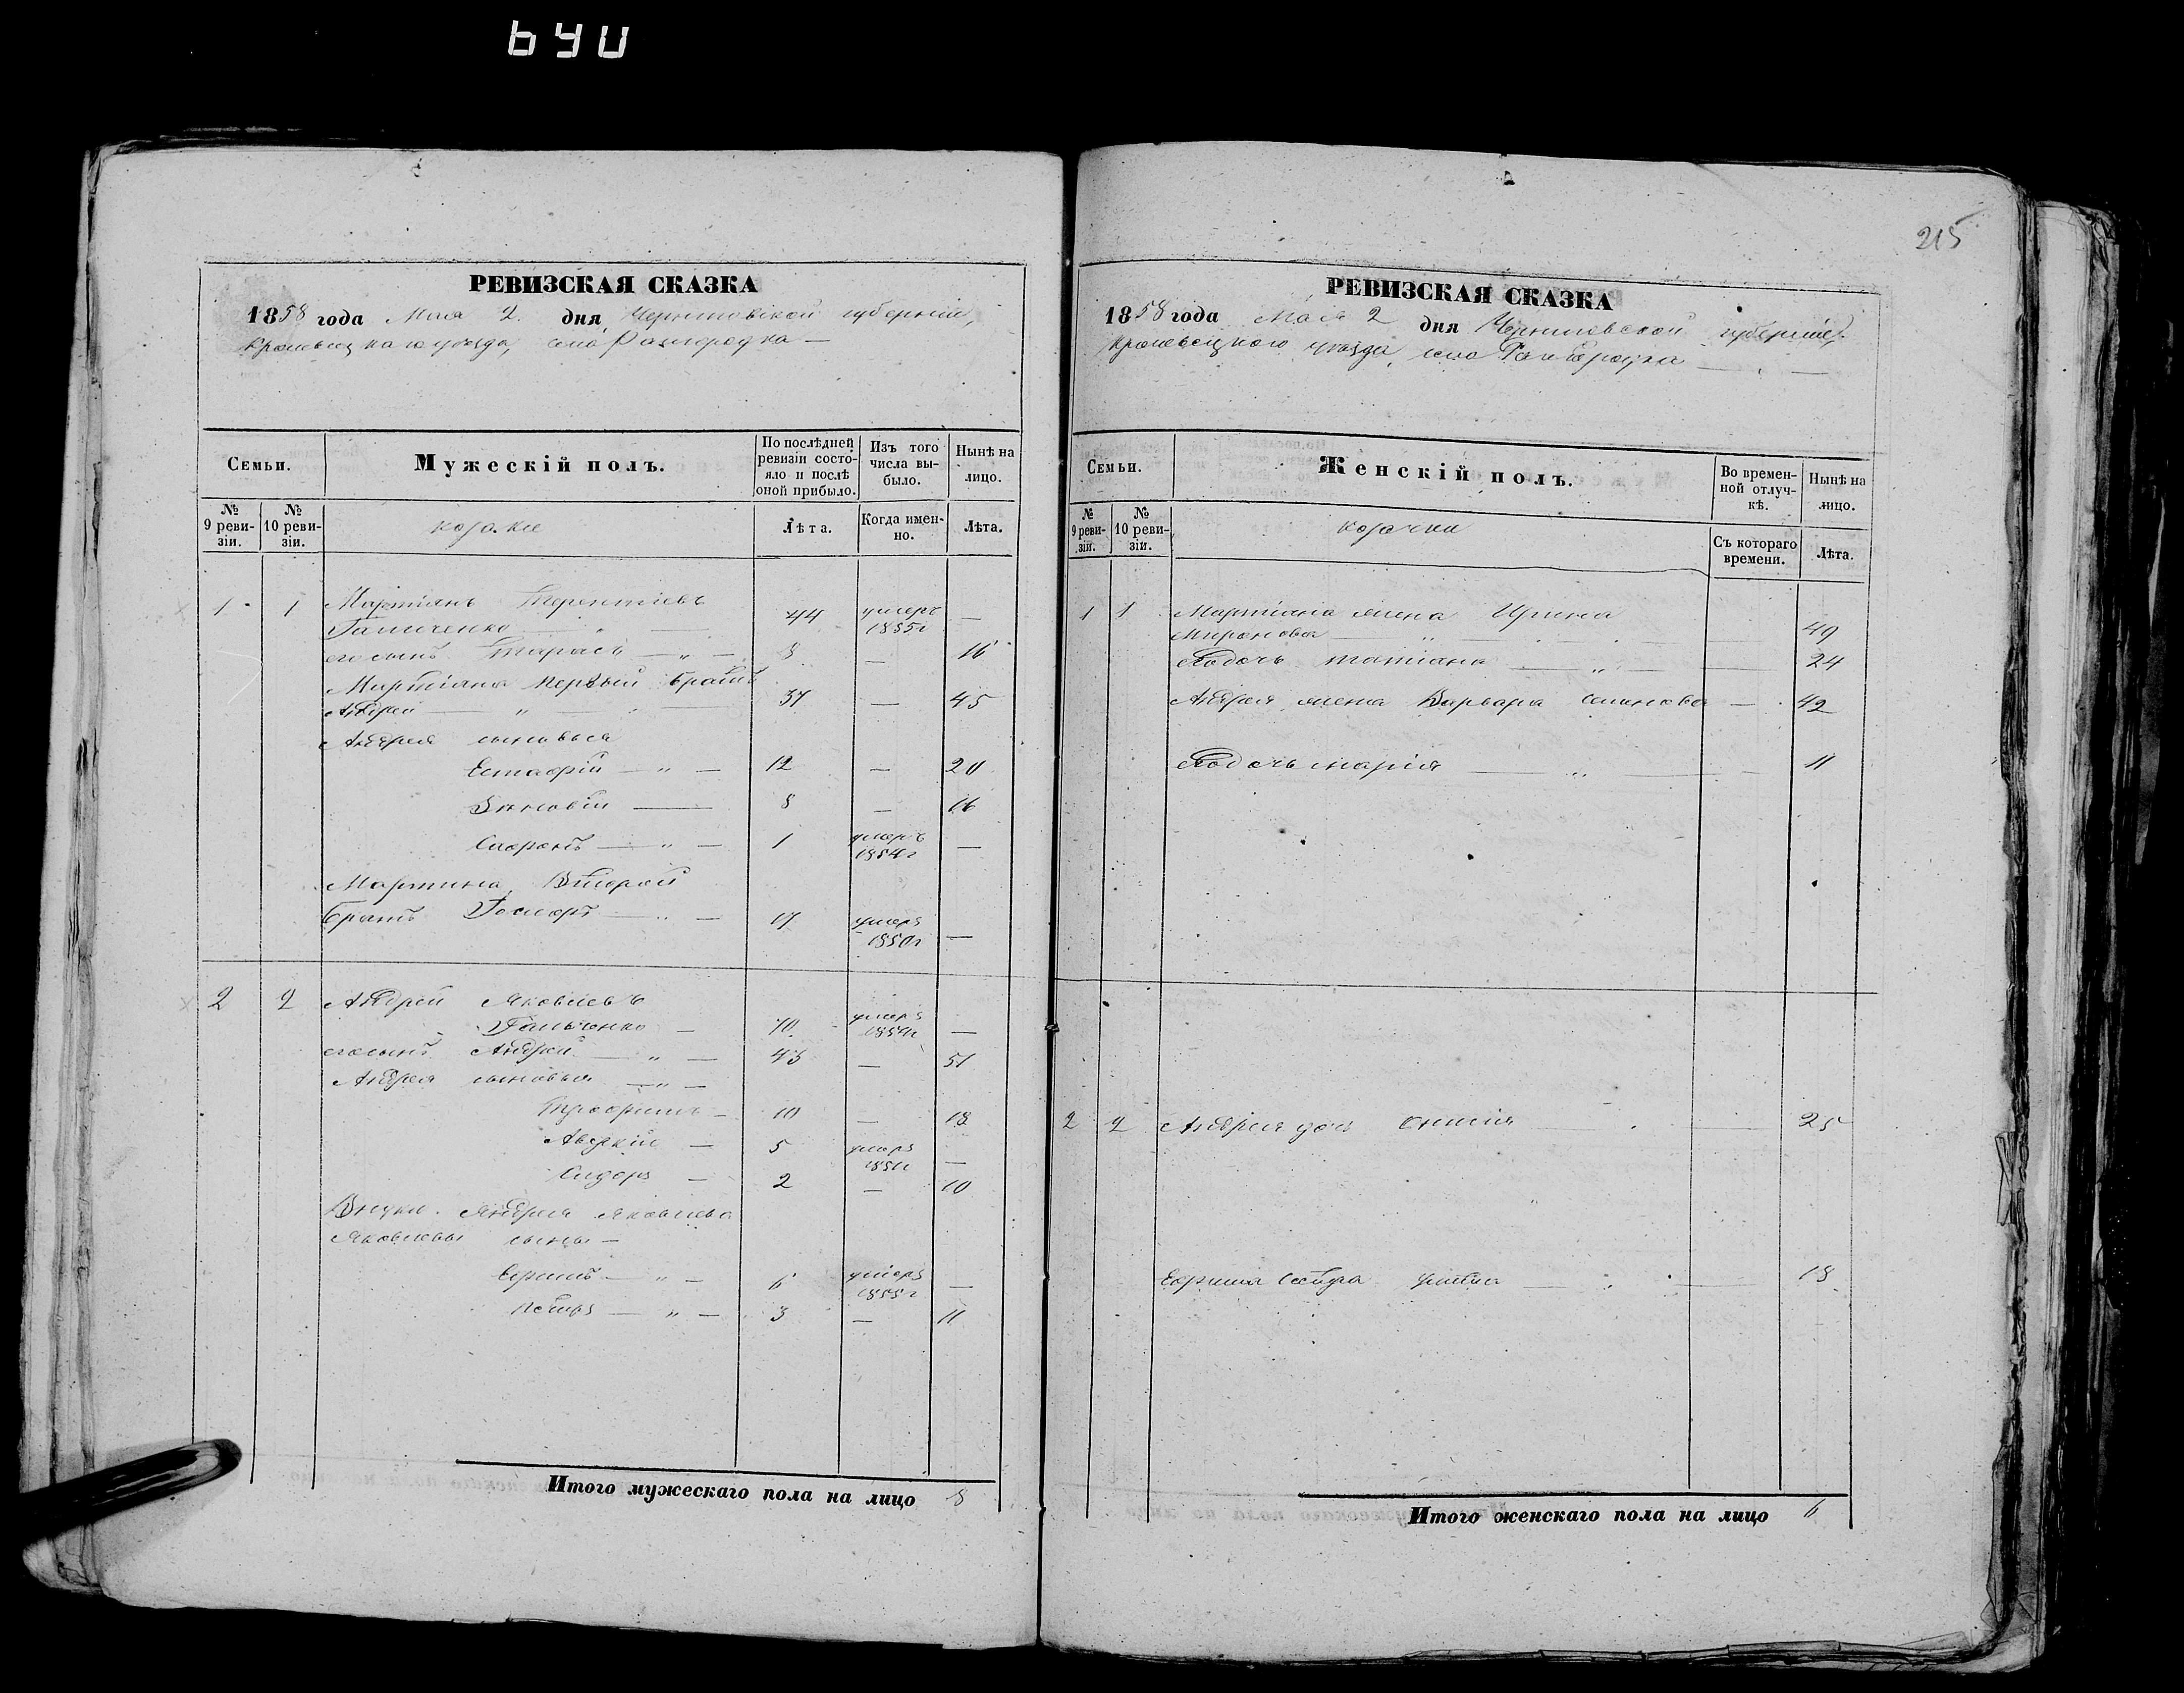 РЕВИЗСКАЯ СКАЗКА
1858 года Мая 2 дня Черниговской губерніи,
Кролевецкаго уезда, село Разгородка —
Семьи.
Мужескій полъ.
По послѣдней ревизіи состояло и послѣ оной прибыло.
Изъ того числа выбыло.
Нынѣ на лицо.
№ 9 ревизіи.
№ 10 ревизіи.
козаки
Лѣта.
Когда именно.
Лѣта.
1 1 Мартіянъ Терентіевъ
44 умеръ 1855г —
его сынъ Тарасъ — „ — 8 — 16
Мартіяна первый братъ
Андрей — „ — 37 — 45
Андрея сыновья
Естафій — „ — 12 — 20
Зиновій — 8 — 16
1 умеръ 1854г —
Мартина второй
братъ — „ — 17 умеръ 1850г —
2 2 Андрей Яковлевъ
Гальченко — 70 умеръ 1854г —
его сынъ Андрей — „ — 43 — 51
Андрея сыновья — „ —
Трофимъ — 10 — 18
Аверкій — 5 умеръ 1851г —
Сидоръ — 2 — 10
Внуки Андрея Яковлева
Яковлевы сыны —
Ефимъ — „ — 6 умеръ 1855г —
Петръ — „ — 3 — 11
Итого мужескаго пола на лицо 8
215
РЕВИЗСКАЯ СКАЗКА
1858 года Мая 2 дня Черниговской губерніи,
Кролевецкого уезда, село
Семьи.
Женскій полъ.
Во временной отлучкѣ.
Нынѣ на лицо.
№ 9 ревизіи.
№ 10 ревизіи.
козачки
Съ котораго времени.
Лѣта.
1 1 Мартіяна жена Ирина
Миронова — „ — 49
Татіяна — „ — 24
Андрея жена Варвара — 42
Марія — „ — 11
2 2 Андрея доч — 25
Ефима сестра — 18
Итого женскаго пола на лицо 6